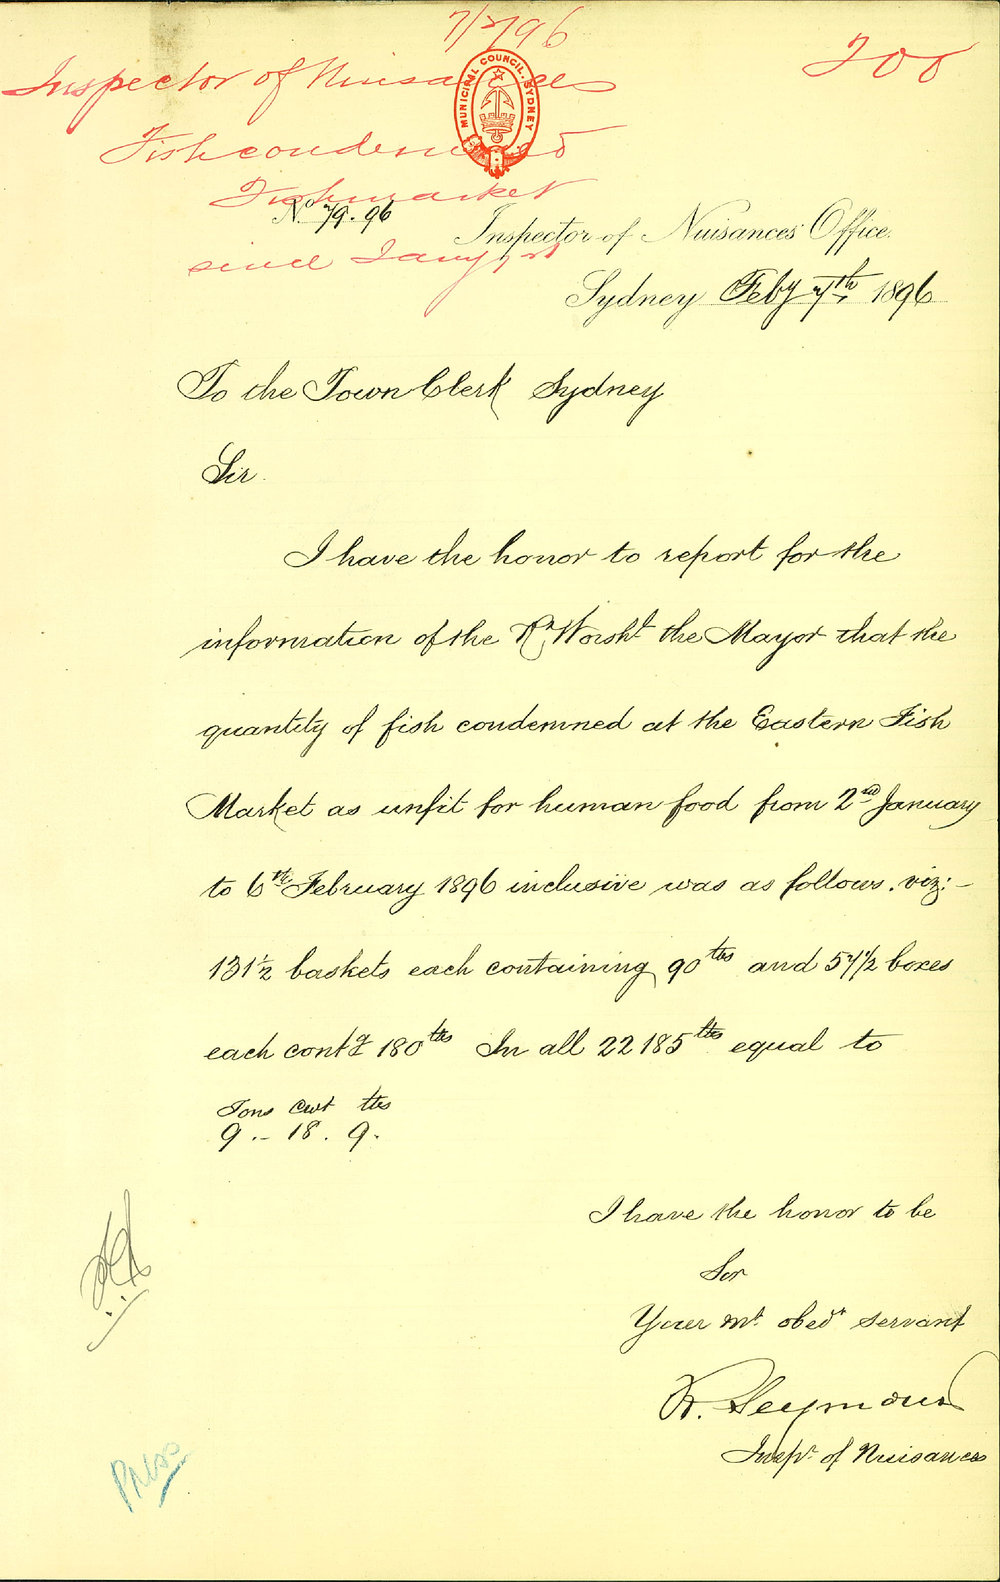 7/2/96
200
Inspector of Nuisances
MUNICIPAL COUNCIL. SYDNEY
Fish condemned
Fishmarket
since Jany 1st
No 79.96
Inspector of Nuisances Office.
Sydney Feby 7th 1896
To the Town Clerk Sydney
Sir.
I have the honor to report for the
information of the Rt Worshl the Mayor that the
quantity of fish condemned at the Eastern Fish
Market as unfit for human food from 2nd January
to 6th February 1896 inclusive was as follows. viz:-
131½ baskets each containing 90 lbs and 57½ boxes
each contg 180 lbs In all 22185 lbs equal to
Tons Cwt lbs
9.- 18. 9.
I have the honor to be
Sir
Your mt obedt servant
R. Seymour
Inspr of Nuisances
Press